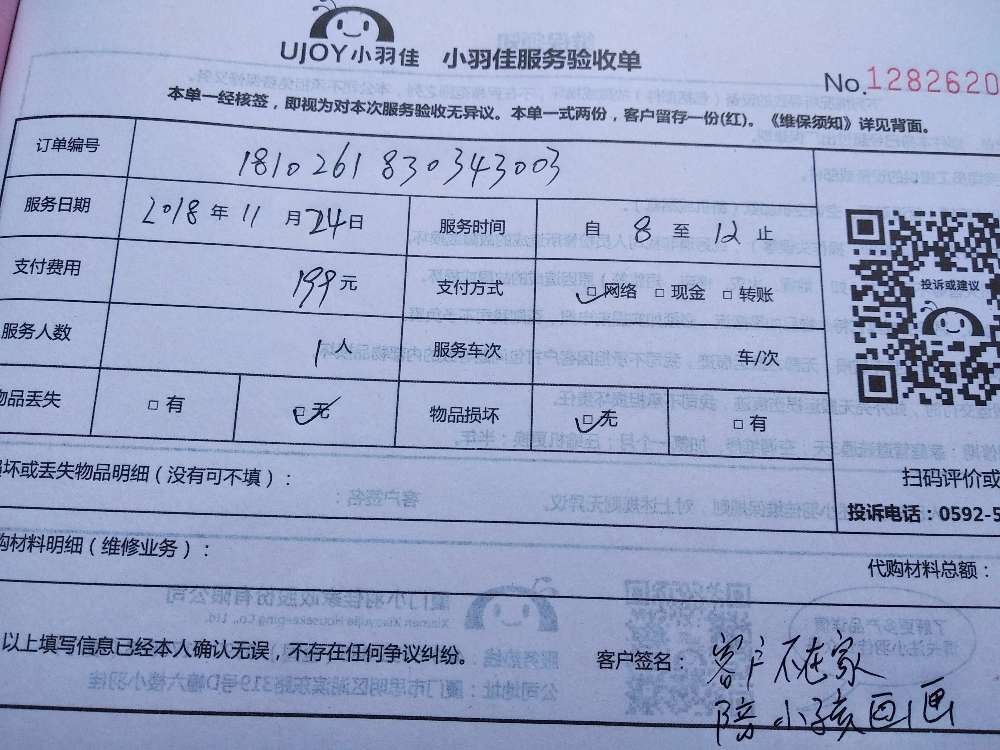 UJOY小羽佳 小羽佳服务验收单
No.1282620
本单一经核签，即视为对本次服务验收无异议。本单一式两份，客户留存一份(红)。《维保须知》详见背面。
订单编号 1810261830343003
服务日期 2018年11月24日 服务时间 自8至12止
支付费用 199元 支付方式 □网络 □现金 □转账
服务人数 1人 服务车次 车/次
物品丢失 □有 □无 物品损坏 □无 □有
投诉或建议
坏或丢失物品明细（没有可不填）：
扫码评价或
投诉电话：0592-5
购材料明细（维修业务）：
代购材料总额：
以上填写信息已经本人确认无误，不存在任何争议纠纷。
客户签名：客户不在家
陪小孩画画